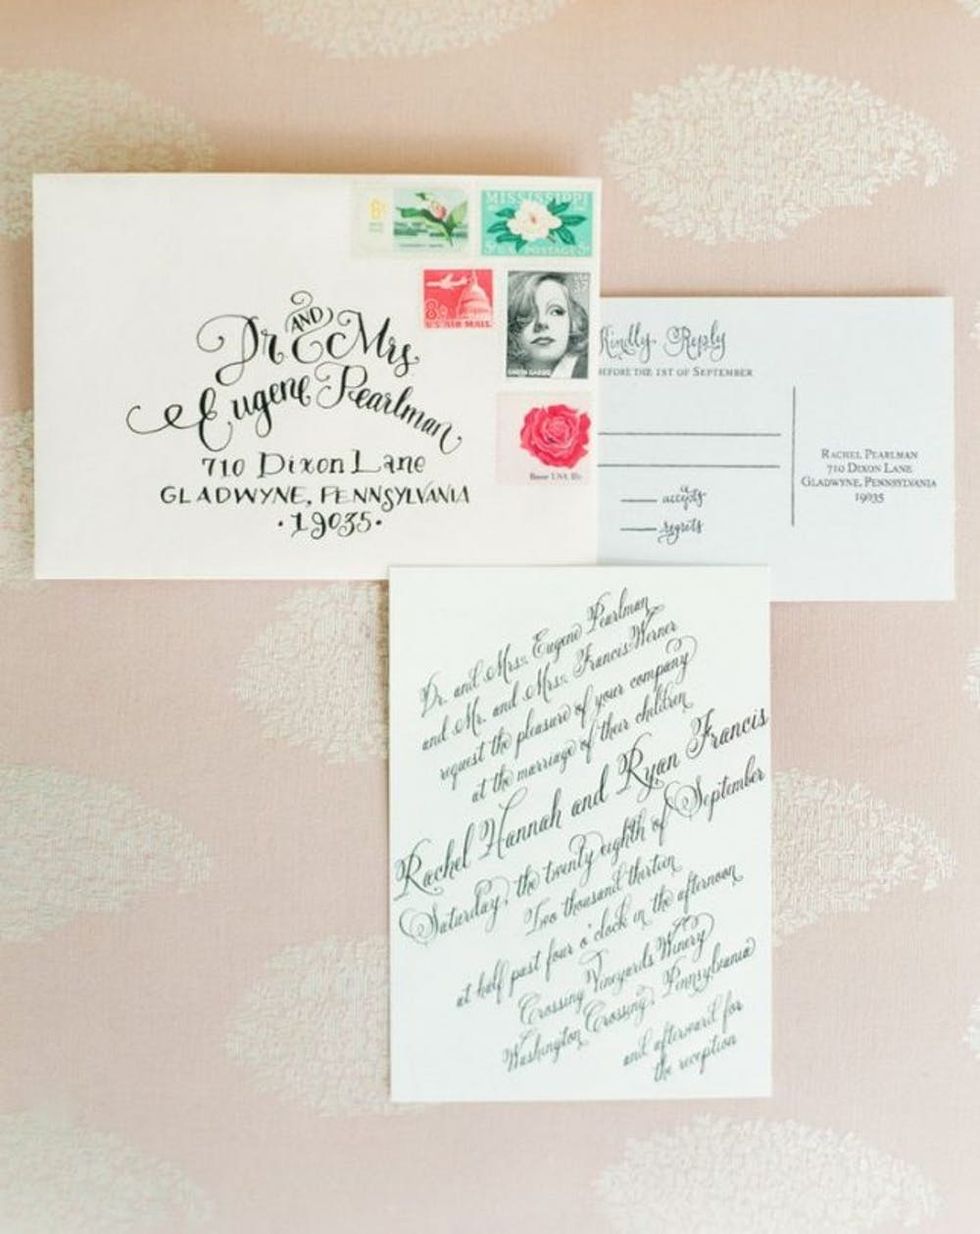 Dr AND Mrs
Eugene Pearlman
710 Dixon Lane
GLADWYNE, PENNSYLVANIA
·19035·
8¢
MISSISSIPPI
5¢ U.S. POSTAGE 5¢
8¢
U.S. AIR MAIL
USA 37
GRETA GARBO
Rose USA
Kindly Reply
BEFORE THE 1ST OF SEPTEMBER
accepts
regrets
RACHEL PEARLMAN
710 DIXON LANE
GLADWYNE, PENNSYLVANIA
19035
Dr. and Mrs. Eugene Pearlman
and Mr. and Mrs. Francis Werner
request the pleasure of your company
at the marriage of their children
Rachel Hannah and Ryan Francis
Saturday, the twenty eighth of September
Two thousand thirteen
at half past four o'clock in the afternoon
Crossing Vineyards Winery
Washington Crossing, Pennsylvania
and afterward for
the reception